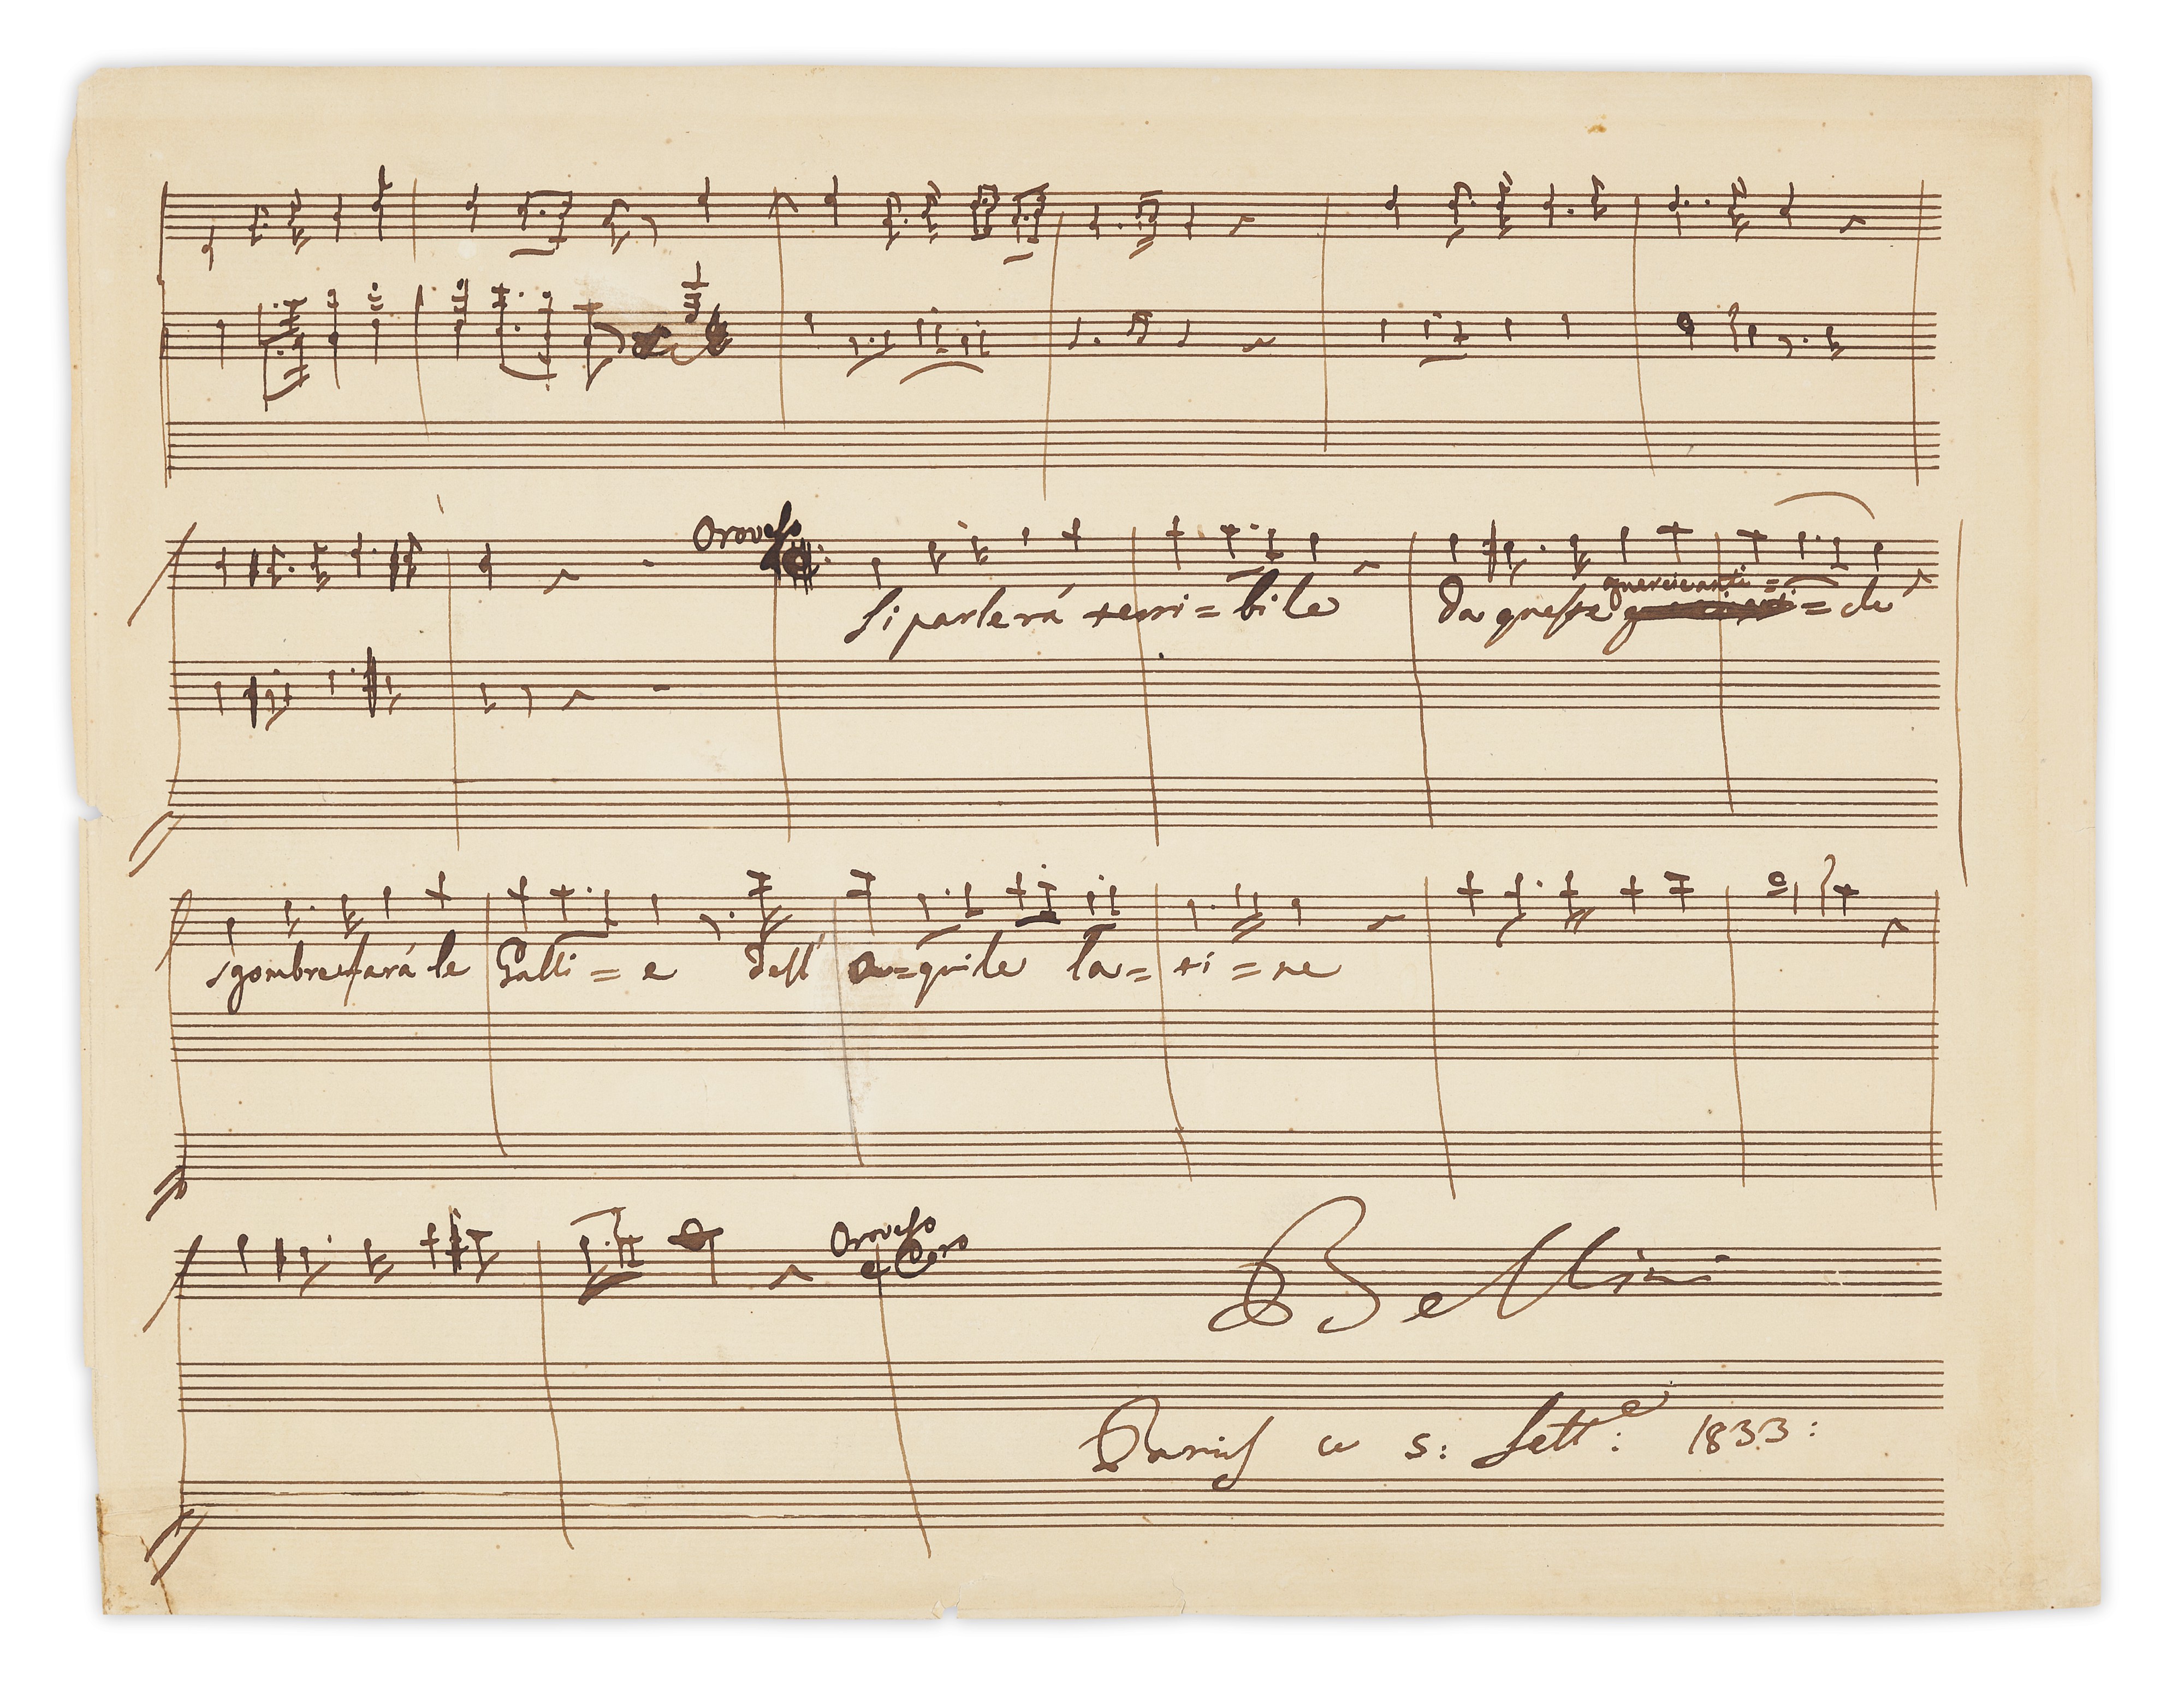 Oroveso
Si parlerá terri=bile da queste quercie anti=che
sgombre fará le Galli=e dell' a=quile la=ti=ne
Oroveso
e Coro
Bellini
Parigi a 5: Sett:e 1833: